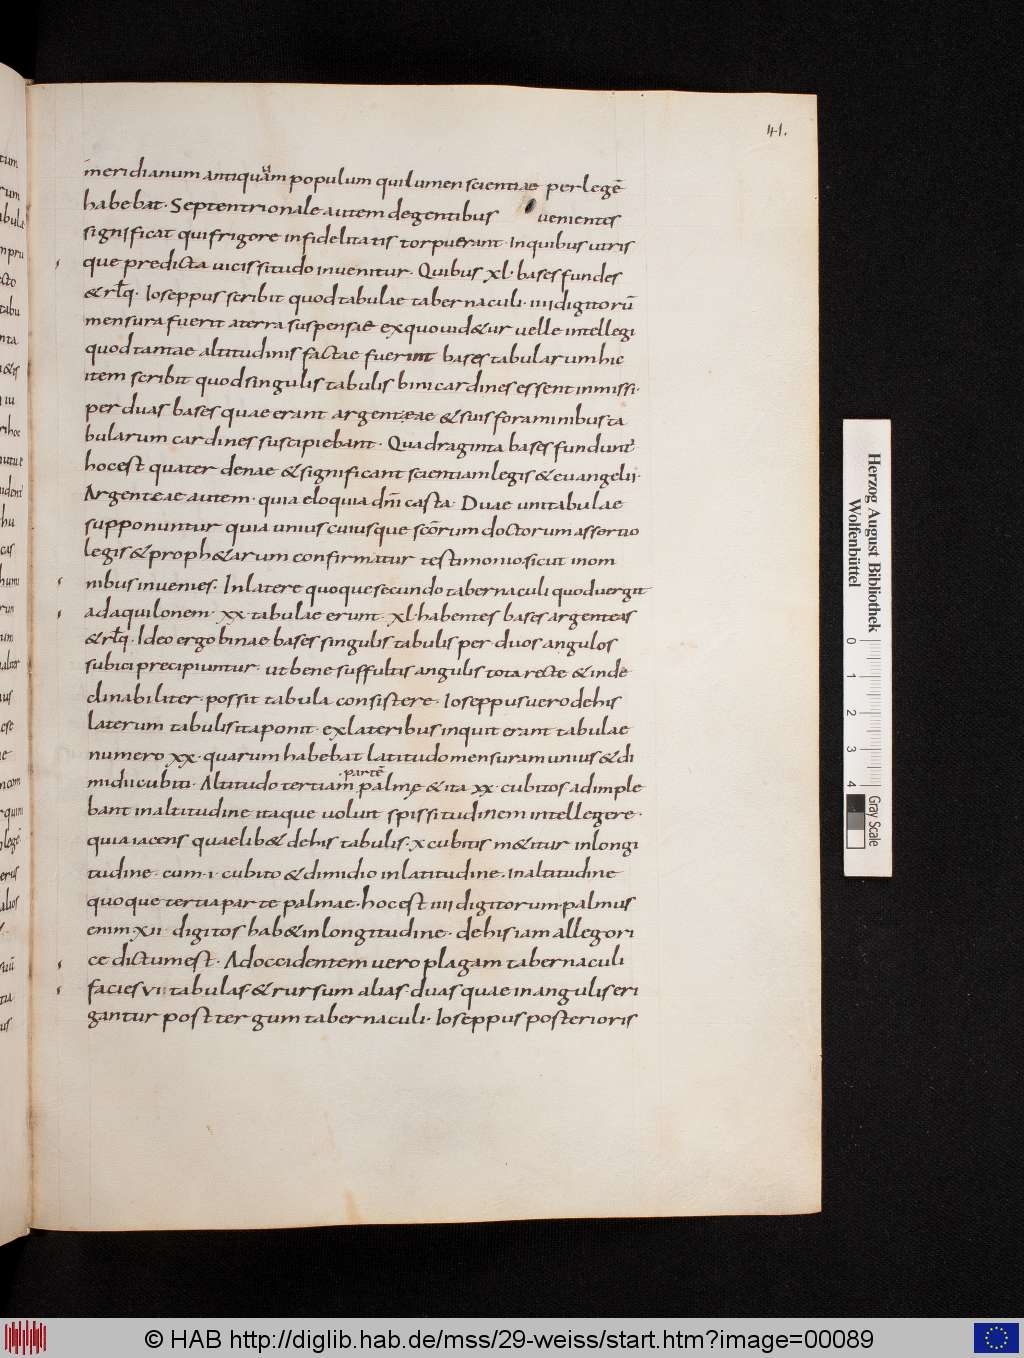 41.
meridianum antiquum populum qui lumen scientiae per legē
habebat. Septentrionale autem de gentibus venientes
significat qui frigore infidelitatis torpuerant. In quibus utris
que predicta vicissitudo invenitur. Quibus xl. bases fundes
& rłq. Ioseppus scribit quod tabulae tabernaculi. iiii digitorū
mensura fuerit a terra suspensae ex quo vid&ur velle intellegi
quod tantae altitudinis factae fuerint bases tabularum hic
item scribit quod singulis tabulis bini cardines essent inmissi.
per duas bases quae erant argenteae & suis foraminibus ta
bularum cardines suscipiebant. Quadraginta bases fundunt
hoc est quater denae & significant scientiam legis & evangelii.
Argenteae autem. quia eloquia dm̄ casta. Duae uni tabulae
supponuntur quia unius cuiusque scōrum doctorum assertio
legis & proph&arum confirmatur testimonio. sicut in om
nibus invenies. In latere quoque secundo tabernaculi quod vergit
ad aquilonem. xx. tabulae erunt. xl. habentes bases argenteas
& rłq. Ideo ergo binae bases singulis tabulis per duos angulos
subici precipiuntur. ut bene suffultis angulis tota recte & inde
clinabiliter possit tabula consistere. Ioseppus vero de his
laterum tabulis ita ponit. ex lateribus inquit erant tabulae
numero xx. quarum habebat latitudo mensuram unius & di
midii cubiti. Altitudo tertiam partē palmę & ita xx. cubitos adimple
bant in altitudine itaque voluit spissitudinem intellegere.
quia iacens quaelib& de his tabulis. x cubitis m&itur in longi
tudine. cum. i. cubito & dimidio in latitudine. In altitudine
quoque tertia parte palmae. hoc est iiii digitorum. palmus
enim. xii. digitos hab& in longitudine. de his iam allegori
ce dictum est. Ad occidentem vero plagam tabernaculi
facies vi. tabulas & rursum alias duas quae in angulis eri
gantur post tergum tabernaculi. Ioseppus posterioris
Herzog August Bibliothek
Wolfenbüttel
0 1 2 3 4
Gray Scale
© HAB http://diglib.hab.de/mss/29-weiss/start.htm?image=00089